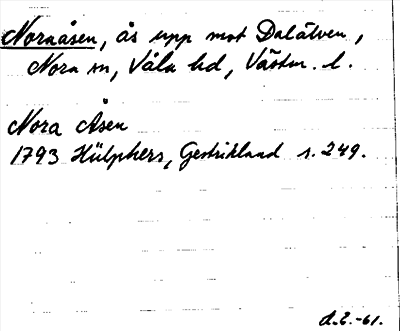 Noraåsen, ås upp mot Dalälven,
Nora sn, Våla hd, Västm. l.
Nora Åsen
1793 Hülphers, Gestrikland s. 249.
d.2.-61.